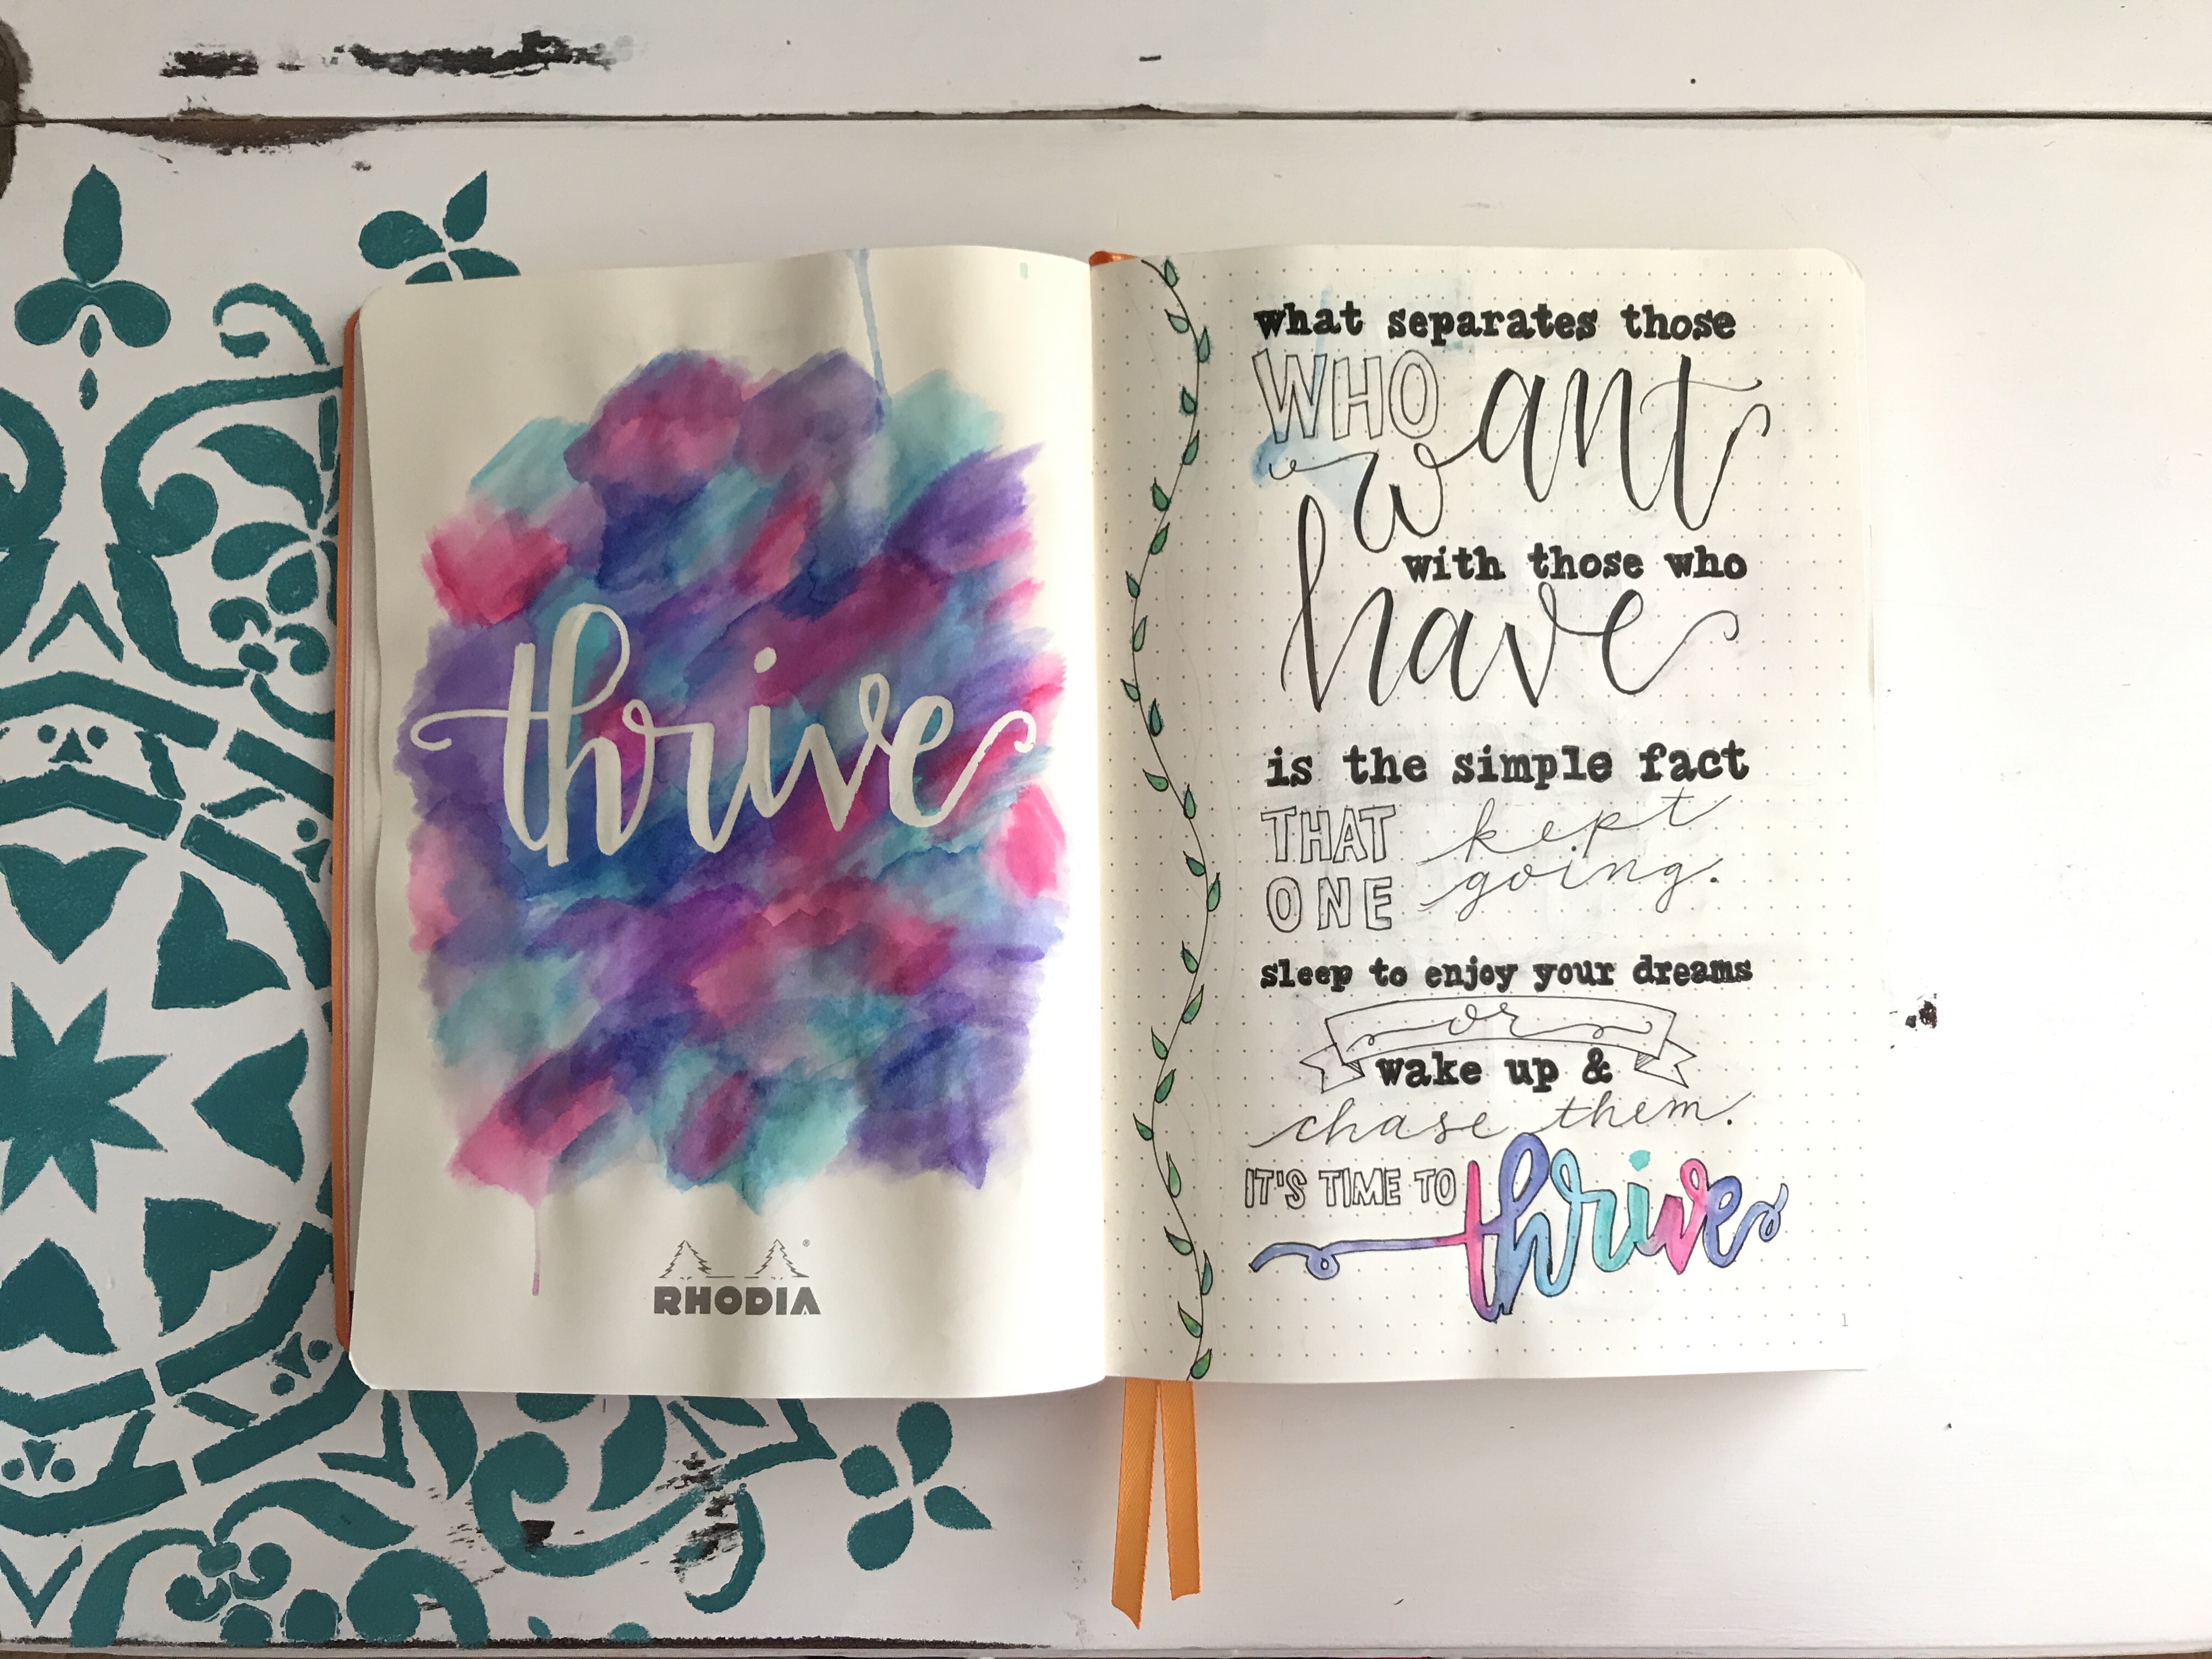 thrive
RHODIA
what separates those
WHO want
with those who
have
is the simple fact
THAT kept
ONE going.
sleep to enjoy your dreams
or
wake up &
chase them.
IT'S TIME TO thrive
1